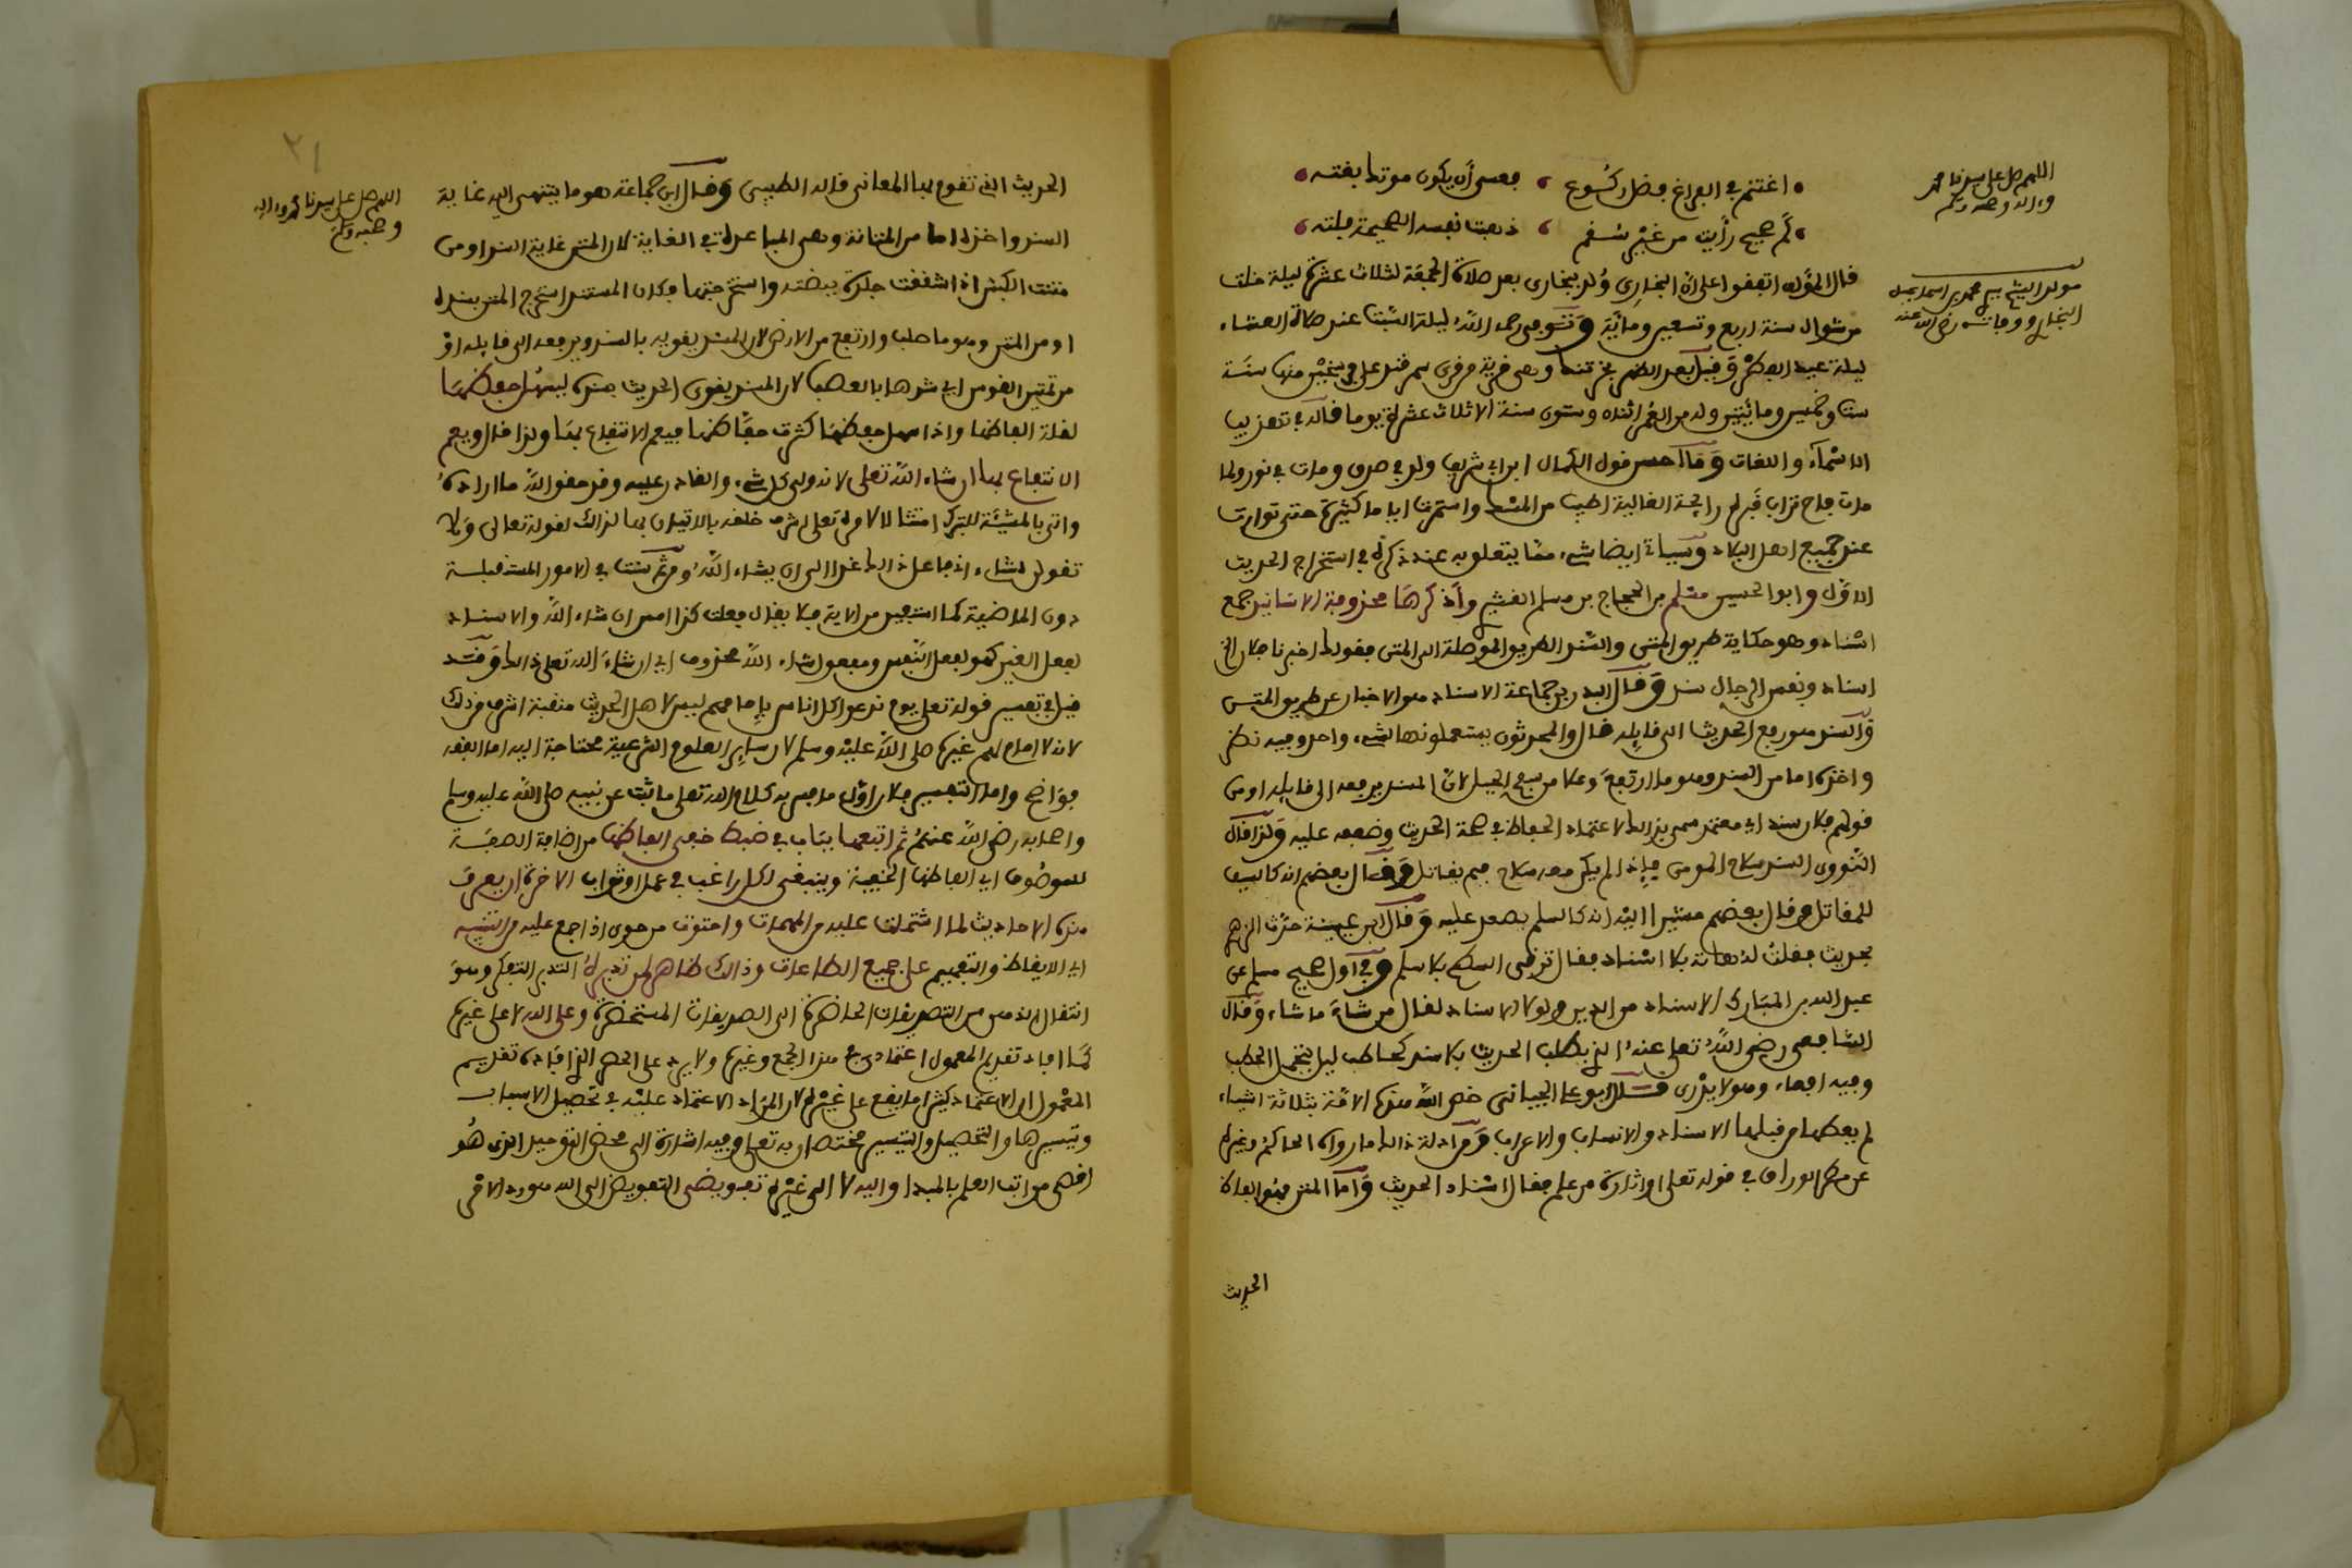 اغتنم في الفراغ فضل ركوع ، فعسى أن يكون موتك بغته
كم صحيح رأيت من غير سقم ، ذهبت نفسه الصحيحة فلته
قال المؤلف اتفقوا على أن البخاري ولد ببخارى بعد صلاة الجمعة لثلاث عشرة ليلة خلت
من شوال سنة أربع وتسعين ومائة وتوفي رحمه الله ليلة السبت عند صلاة العشاء
ليلة عيد الفطر وقيل بعد الظهر بخرتنك وهي قرية من قرى سمرقند على فرسخين منها سنة
ست وخمسين ومائتين وله من العمر اثنان وستون سنة إلا ثلاث عشرة يوما قاله في تهذيب
الأسماء واللغات وما أحسن قول الكمال ابن أبي شريف ولد في صدق ومات في نور ولما
مات فاح تراب قبره رائحة الغالية أطيب من المسك واستمرت أياما كثيرة حتى تواترت
عند جميع أهل البلاد وسيأتي أيضا شيء مما يتعلق به عند ذكره في استخراج الحديث
الأول وأبو الحسين مسلم بن الحجاج بن مسلم القشيري وأذكرها محذوفة الأسانيد جمع
إسناد وهو حكاية طريق المتن والسند الطريق الموصلة إلى المتن فقولك أخبرنا فلان الخ
إسناد ونفس الرجال سند وقال البدر بن جماعة الإسناد هو الإخبار عن طريق المتن
والسند هو رفع الحديث إلى قايله قال والمحدثون يستعملونهما لشيء واحد وفيه نظر
وأخذه إما من السند وهو ما ارتفع وعلا من سفح الجبل لأن المسند يرفعه إلى قايله أو من
قولهم فلان سند أي معتمد سمي بذلك لاعتماد الحفاظ في صحة الحديث وضعفه عليه ولذا قال
النووي السند سلاح المومن فإذا لم يكن معه سلاح فبم يقاتل وقال بعضهم إنه كالسيف
للمقاتل وقال بعضهم مشيرا إليه إنه كالسلم يصعد عليه وقال ابن عيينة حدث الزهري
بحديث فقلت له هاته بلا إسناد فقال ترقى السطح بلا سلم وفي أول صحيح مسلم عن
عبد الله بن المبارك الإسناد من الدين ولولا الإسناد لقال من شاء ما شاء وقال
الشافعي رضي الله تعلى عنه الذي يطلب الحديث بلا سند كحاطب ليل يحمل الحطب
وفيه أفعى وهو لا يدري قال أبو علي الجياني خص الله هذه الأمة بثلاثة أشياء
لم يعطها من قبلها الإسناد والأنساب والإعراب ومن أدلة ذلك ما رواه الحاكم وغيره
عن مطر الوراق في قوله تعلى أو أثارة من علم فقال إسناد الحديث وأما المتن فهو ألفاظ
الحديث
اللهم صل على سيدنا محمد
وءاله وصحبه وسلم
مولد الشيخ محمد بن اسماعيل
البخاري ووفاته رضي الله عنه
الحديث التي تقوم بها المعاني قاله الطيبي وقال ابن جماعة هو ما ينتهي إليه غاية
السند وأخذه إما من المماتنة وهي المباعدة في الغاية لأن المتن غاية السند أو من
متنت الكبش إذا شققت جلدة بيضته واستخرجتها فكان المسند استخرج المتن بسنده
أو من المتن وهو ما صلب وارتفع من الأرض لأن المسند يقويه بالسند ويرفعه إلى قايله أو
من تمتين القوس أي شدها بالعصب لأن المسند يقوي الحديث بسنده ليسهل حفظها
لقلة ألفاظها وإذا سهل حفظها كثرت حفاظها فيعم الانتفاع بها ولذا قال ويعم
الانتفاع بها إن شاء الله تعلى لأنه ولي كل شيء والقادر عليه وقد حقق الله ما أراده
وأتى بالمشيئة للتبرك امتثالا لأمره تعلى أشرف خلقه بالإتيان بها لذلك لقوله تعالى ولا
تقولن لشيء إني فاعل ذلك غدا إلا أن يشاء الله ومن ثم سنت في الأمور المستقبلة
دون الماضية كما استفيد من الآية فلا يقال فعلت كذا أمس إن شاء الله والإسناد
لفعل الغير كهو لفعل النفس ومفعول شاء الله محذوف أي إن شاء الله تعلى ذلك وقد
قيل في تفسير قوله تعلى يوم ندعوا كل أناس بإمامهم ليس لأهل الحديث منقبة أشرف من ذلك
لأنه لا إمام لهم غيره صلى الله عليه وسلم لأن ساير العلوم الشرعية محتاجة إليه أما الفقه
فواضح وأما التفسير فلأن أولى ما فسر به كلام الله تعلى ما ثبت عن نبيه صلى الله عليه وسلم
وأصحابه رضي الله عنهم ثم أتبعها بباب في ضبط خفي ألفاظها من إضافة الصفة
للموصوف أي ألفاظها الخفية وينبغي لكل راغب في عمل أو ثواب الآخرة أن يعرف
هذه الأحاديث لما اشتملت عليه من المهمات واحتوت من حوى إذا جمع عليه من التنبيه
أي الإيقاظ والتعميم على جميع الطاعات وذلك ظاهر لمن تدبره التدبر التفكر وهو
انتقال الذهن من التصديقات الحاضرة إلى التصديقات المستحضرة وعلى الله لا على غيره
كما أفاد تقديم المعمول اعتمادي في هذا الجمع وغيره ولا يرد على الحصر الذي أفاده تقديم
المعمول أن الاعتماد كثيرا ما يقع على غيره لأن المراد الاعتماد عليه في تحصيل الأسباب
وتيسيرها والتحصيل والتيسير مختصان به تعلى وفيه إشارة إلى محض التوحيد الذي هو
أقصى مراتب العلم بالمبدإ وإليه لا إلى غيره تفويضي التفويض إلى الله هو رد الأمر
اللهم صل على سيدنا محمد وءاله
وصحبه وسلم
٢١